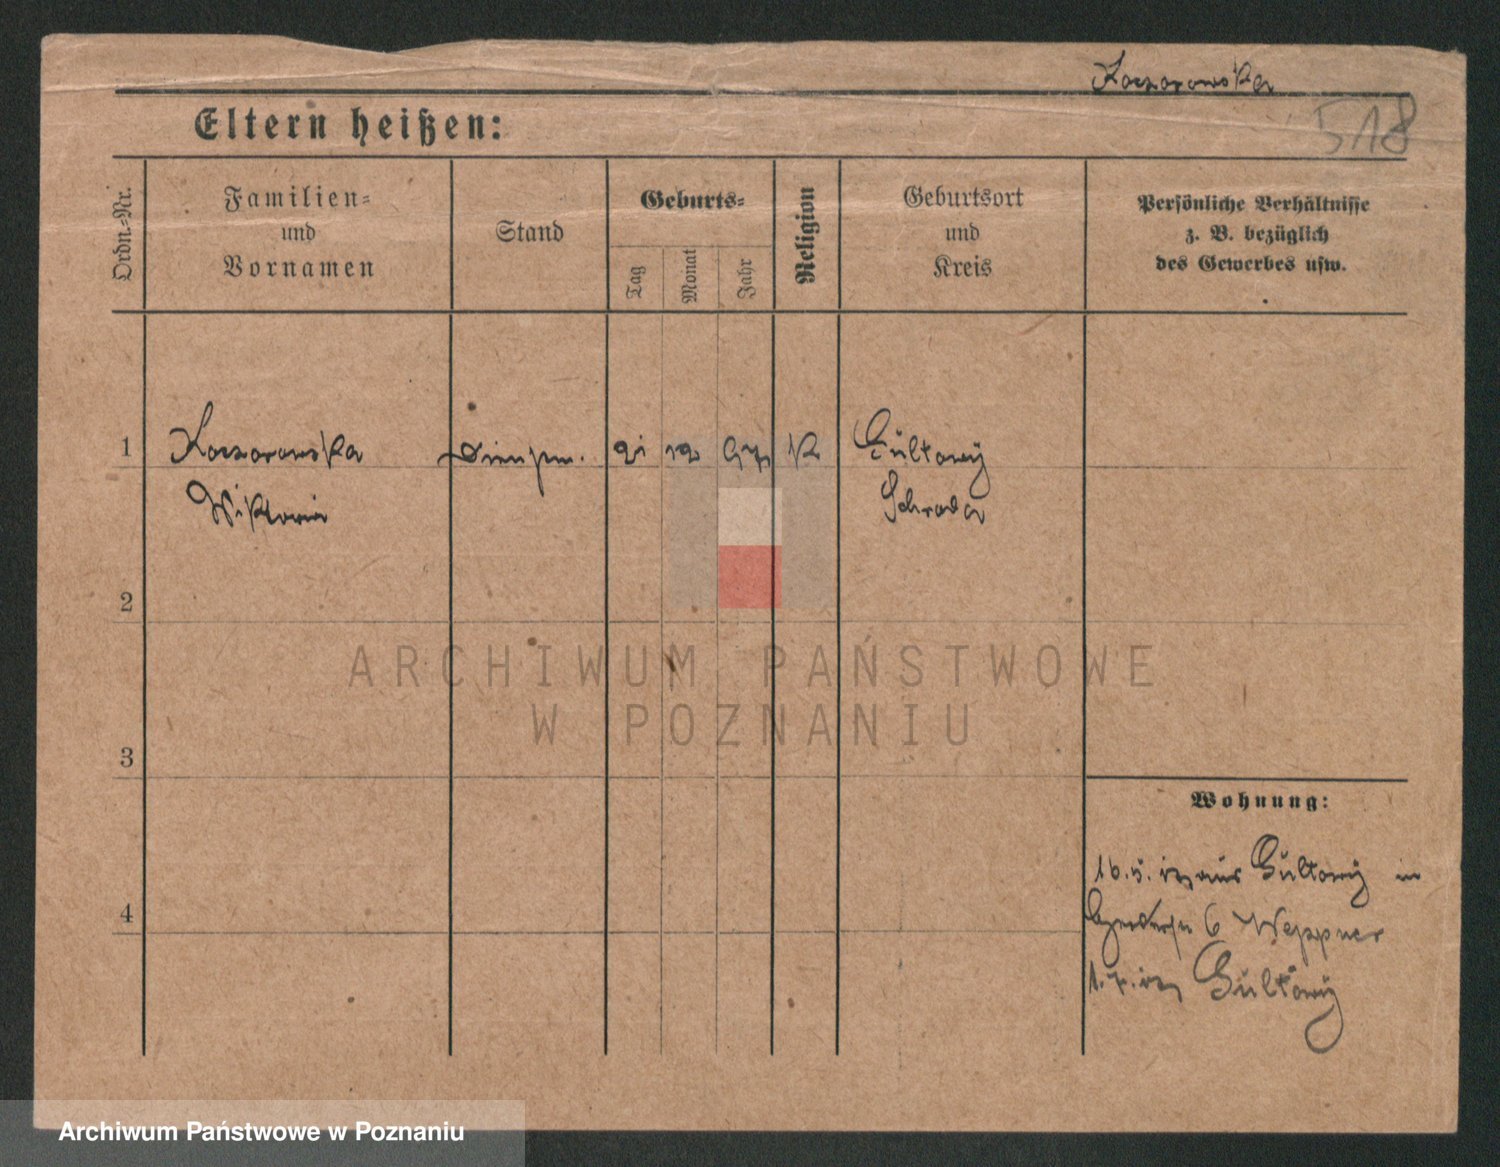 Kaczorowska
518
Eltern heißen:
Ordn.-Nr.
Familien-
und
Vornamen
Stand
Geburts-
Tag
Monat
Jahr
Religion
Geburtsort
und
Kreis
Persönliche Verhältnisse
z. B. bezüglich
des Gewerbes usw.
1 Kaczorowska 12 97 K Gultowy
Wiktoria Schroda
2
3
4
Wohnung:
16.5. aus Gultowy in
6 Weppner
1.7. Gultowy
ARCHIWUM PAŃSTWOWE
W POZNANIU
Archiwum Państwowe w Poznaniu